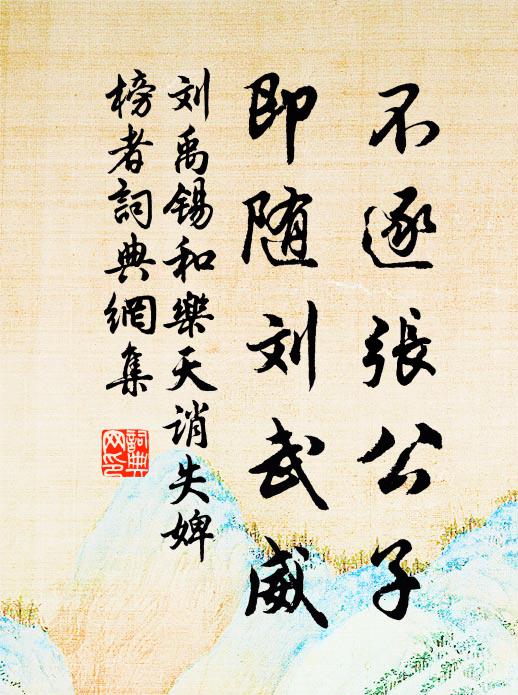 不逐張公子
即随刘武威
刘禹锡和樂天诮失婢
榜者詞典網集
詞典
网印